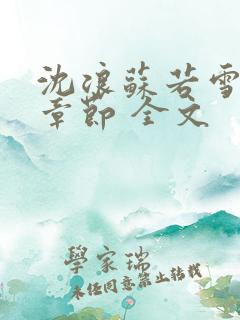 沈浪蘇若雪
章節 全文
學家瑞
未經同意禁止轉載